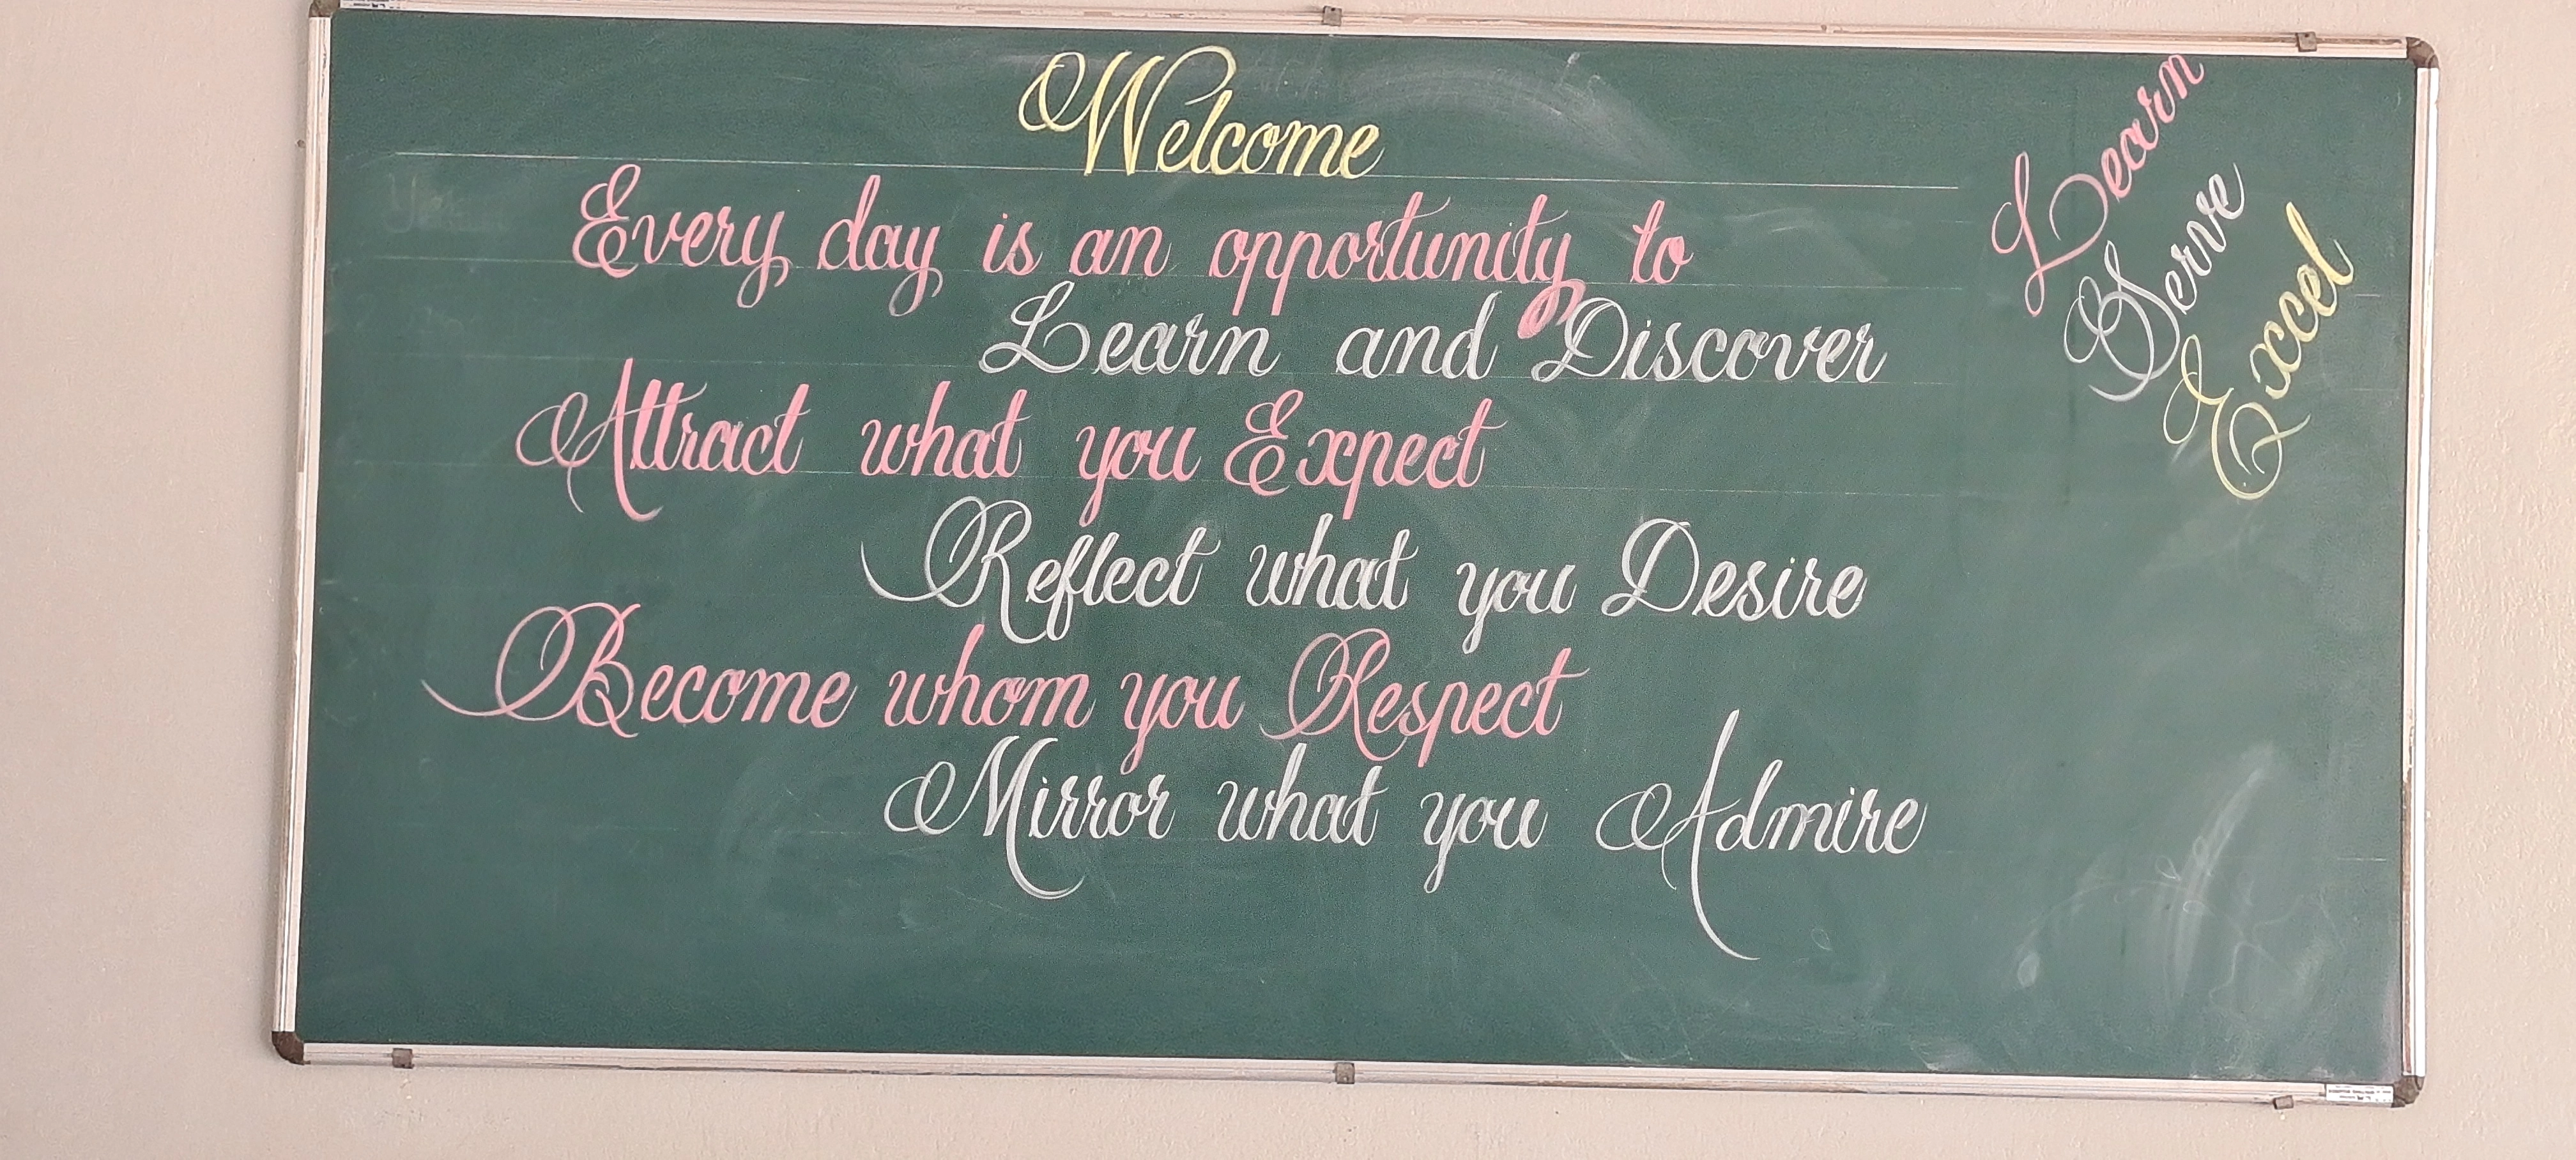 Welcome
Every day is an opportunity to
Learn and Discover
Attract what you Expect
Reflect what you Desire
Become whom you Respect
Mirror what you Admire
Learn
Serve
Excel